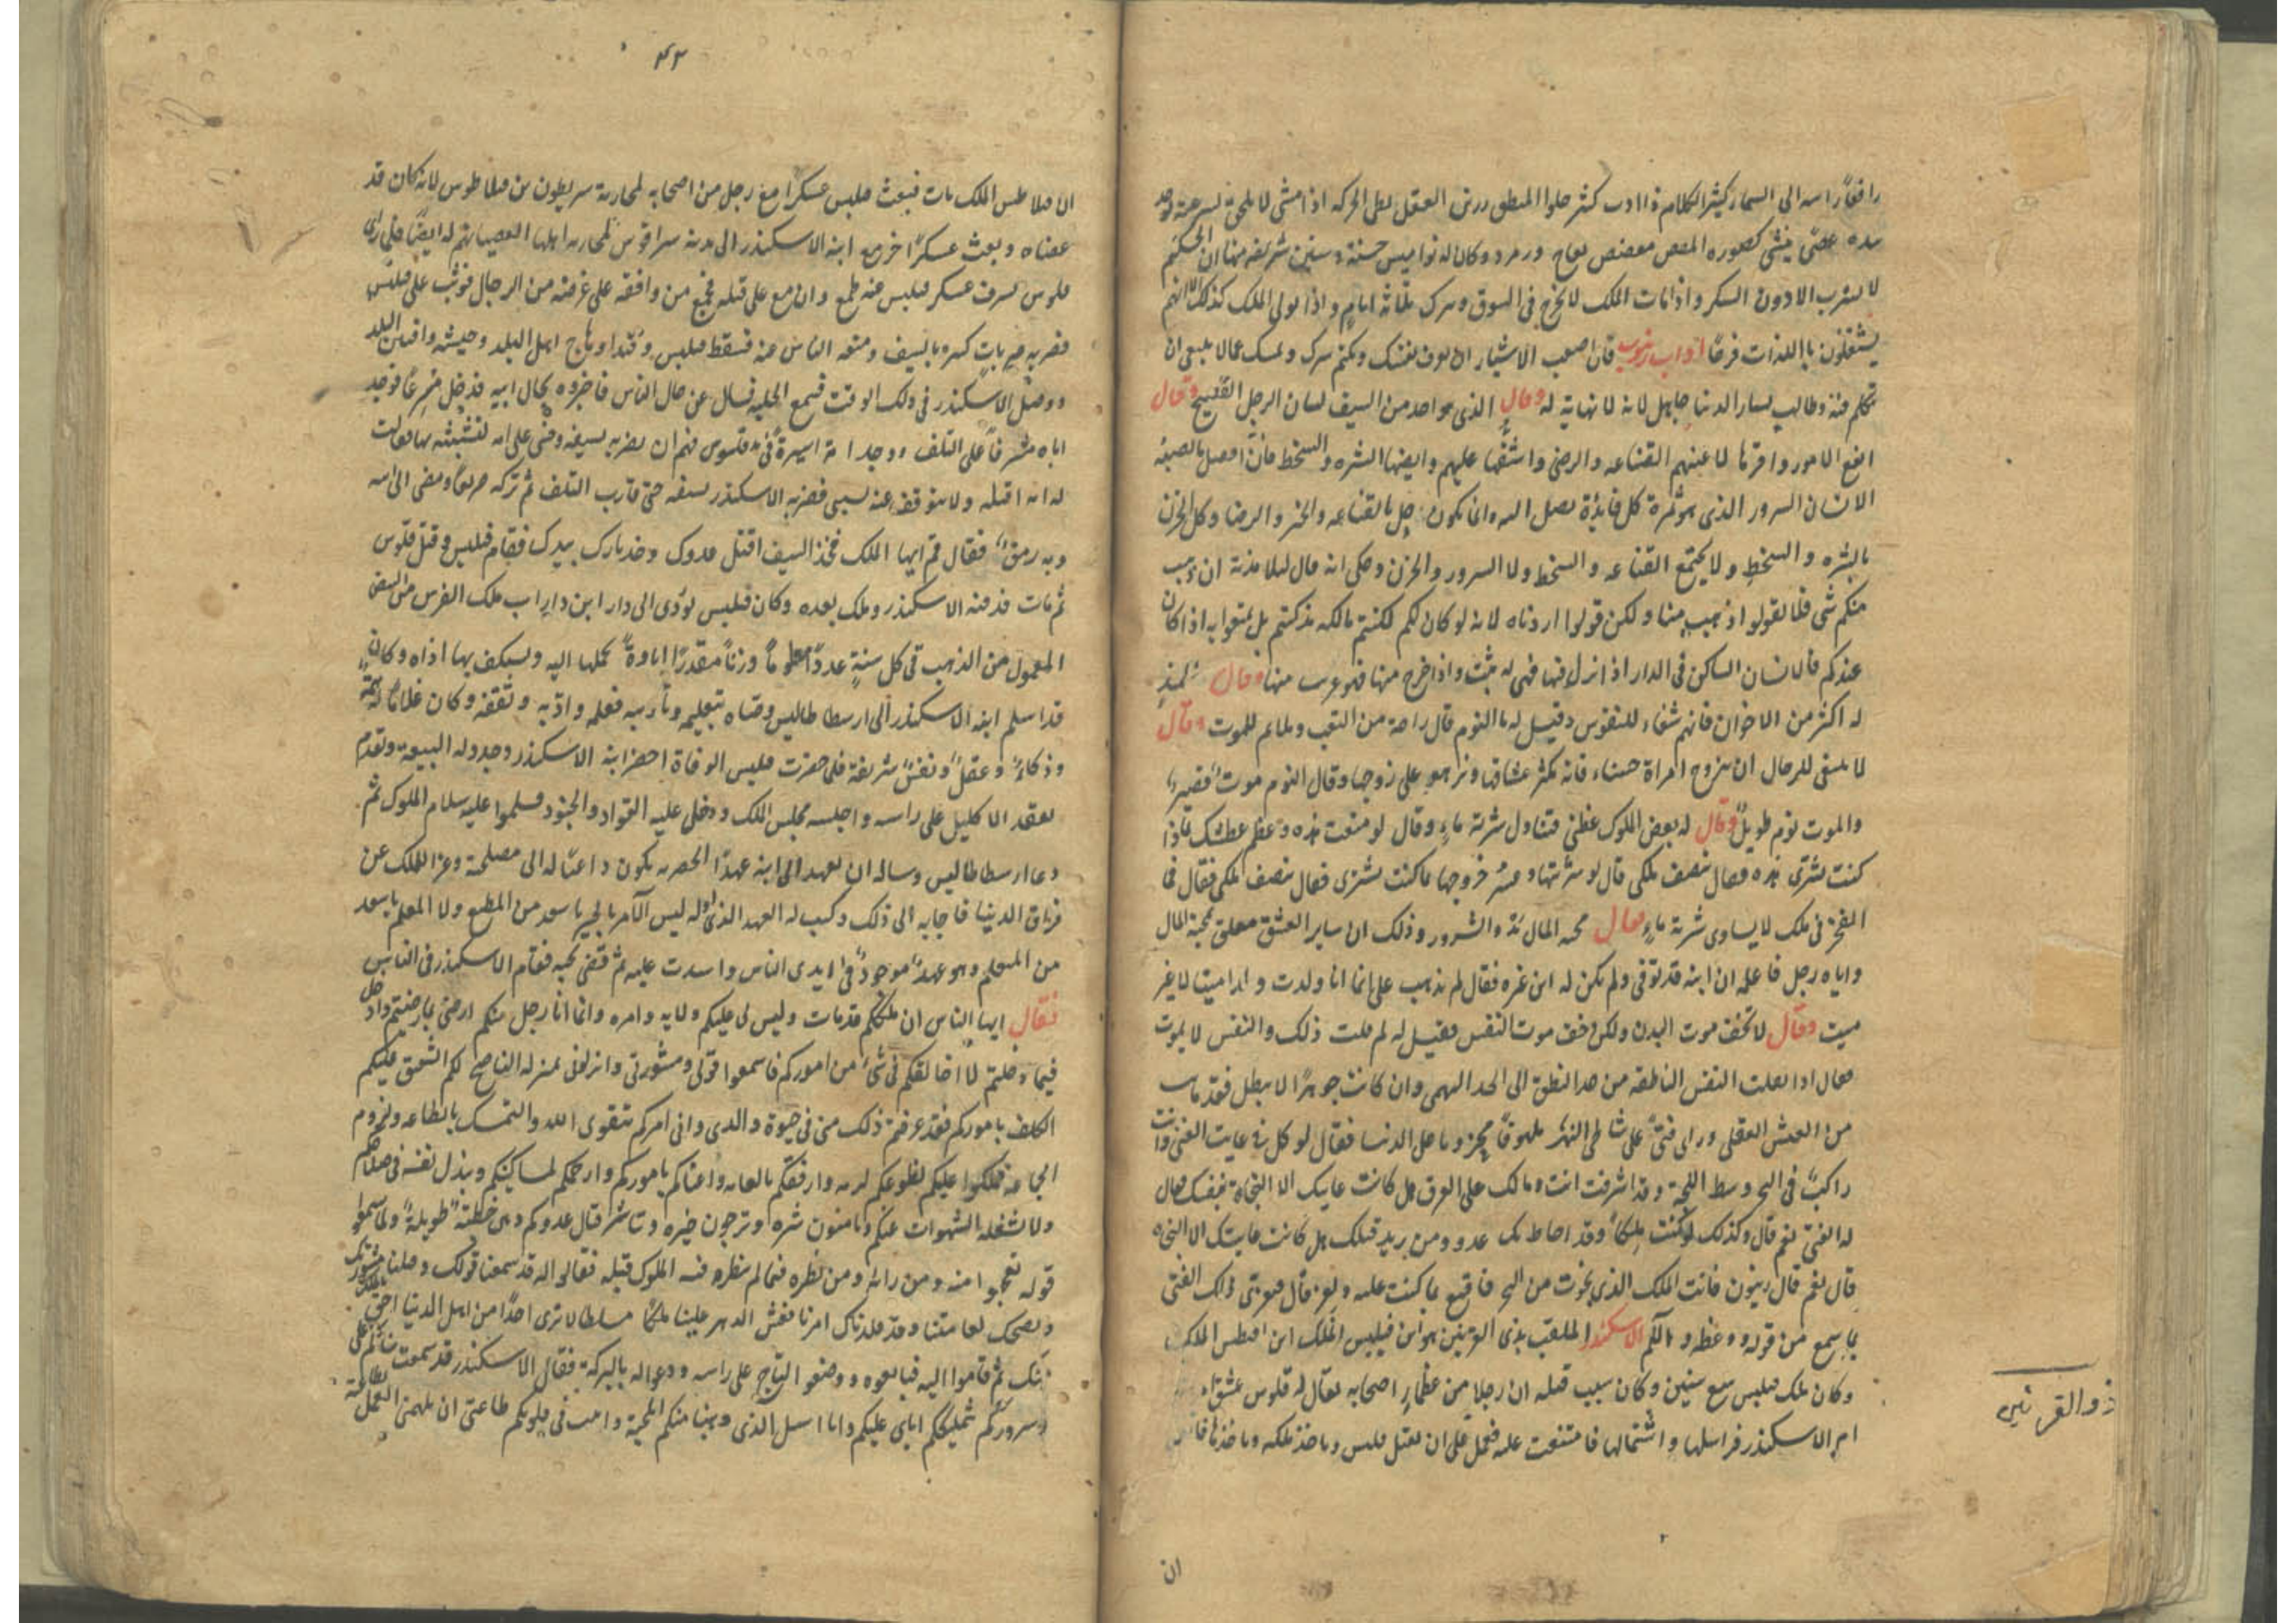 رافعاً راسه الى السماء كثير الكلام ذا ادب كثير حلوا المنطق رزين العقل بطى الحركه اذا مشى لا يلحق لسرعته وبيد
عصى كصوره وزمرد وكان له نواميس حسنة وسنين شريفه منها ان الحكيم
لا يشرب الا دون السكر واذا مات الملك لا يخرج فى السوق ويترك ثلاثة ايام واذا تولى الملك كذلك
يشتغلون باللذات فرحاً اداب زينون قال اصعب الاشياء ان يعرف نفسك ويكتم سرك وتمسك عما لا ينبغى ان
تتكلم فيه وطالب يسار الدنيا جاهل لانه لا نهاية له وقال الذى هو احد من السيف لسان الرجل الفصيح وقال
انفع الامور واقرها لاعينهم القناعه والرضى واشقها عليهم وابغضها الشره والسخط فان افضل ما يصيبه
الانسان السرور الذى هو ثمرة كل فايدة يصل اليه وانما يكون جل بالقناعه والخير والرضا وكل الحزن
بالشره والسخط ولا يجتمع القناعه والسخط ولا السرور والحزن وحكى انه قال لتلامذته ان ذهب
منكم شى فلا تقولوا اذهب منا ولكن قولوا رددناه لانه لو كان لكم لكنتم مالكه مذ كنتم بل تمتعوا به اذا كان
عندكم كالانسان الساكن فى الدار اذا نزل فيها فهى له بيت واذا خرج منها فهو غريب منها وقال
له اكثر من الاخوان فانهم شفاء للنفوس وقيل له ما النوم قال راحة من التعب وملايم للموت وقال
لا ينبغى للرجال ان يتزوج امراة حسناء فانه يكثر عشاقها ويزهو على زوجها وقال النوم موت قصير
والموت نوم طويل وقال له بعض الملوك عظنى فتناول شربة ماء وقال لو منعت هذه وعظم عطشك بماذا
كنت تشترى هذه فقال بنصف ملكى قال لو شربتها وعسر خروجها ما كنت تشترى فقال بنصف ملكى فقال فما
الفخر فى ملك لا يساوى شربة ماء وقال محبة المال وتد الشرور وذلك ان ساير العشق معلق بمحبة المال
واتاه رجل فاعلمه ان ابنه قد توفى ولم يكن له ابن غيره فقال لم يذهب على انما انا ولدت ولدا ميتا لا غير
ميت وقال لا تخف موت البدن ولكن خف موت النفس فقيل له لم قلت ذلك والنفس لا يموت
فقال اذا انتقلت النفس الناطقه من حد النطق الى الحد البهيمى وان كانت جوهرًا لا يبطل فقد مات
من العيش العقلى وراى فتىً على شاطى النهر ملهوفاً محزونا على الدنيا فقال لو كان فى غايت الغنى وانت
راكباً فى البحر وسط اللجة وقد اشرفت انت ومالك على الغرق هل كانت غايتك الا النجاة بنفسك قال
له الفتى نعم قال وكذلك لو كنت ملكاً وقد احاط بك عدو ومن يريد قتلك هل كانت غايتك الا النجاه
قال نعم قال زينون فانت الملك الذى نجوت من البحر فاقنع بما كنت عليه فتعزى ذلك الفتى
بما سمع من قوله ووعظه والحكم الاسكندر الملقب بذى القرنين هو ابن فيلبس الملك ابن امنطس الملك
وكان ملك فيلبس سبع سنين وكان سبب قتله ان رجلا من عظماء اصحابه يقال له قلوس عشق
ام الاسكندر فراسلها واستمالها فامتنعت عليه فعمل على ان يقتل فيلبس وياخذ ملكه وياخذها
ذو القرنين
ان
٤٢
الملك مات فبعث فيلبس عسكرا مع رجل من اصحابه لمحاربة لانه كان قد
عصاه وبعث عسكرًا اخر مع ابنه الاسكندر الى مدينه لمحاربة اهلها لعصيانهم له ايضًا فلما راى
قلوس تفرق عسكر فيلبس عنه طمع وازمع على قتله فجمع من وافقه على غرضه من الرجال فوثب على فيلبس
فضربه ضربات كثيره بالسيف ومنعه الناس عنه فسقط فيلبس وقيدا وهاج اهل البلد وجيشه واقتتل البلد
ووصل الاسكندر فى ذلك الوقت فسمع الجلبه فسال عن حال الناس فاخبروه بحال ابيه فدخل مسرعًا فوجد
اباه مشرفاً على التلف ووجد امه اسيرةً فى يد قلوس فهم ان يضربه بسيفه وخشى على امه لتشبثه بها فقالت
له امه اقتله ولا يتوقف عنه بسببى فضربه الاسكندر بسيفه حتى قارب التلف ثم تركه صريعًا ومضى الى ابيه
وبه رمق فقال قم ايها الملك فخذ السيف اقتل عدوك وخذ ثارك بيدك فقام فيلبس وقتل قلوس
ثم مات فدفنه الاسكندر وملك بعده وكان فيلبس يؤدى الى دارا ابن داراب ملك الفرس من البيض
المعمول من الذهب فى كل سنةٍ عددًا معلوماً وزناً مقدرًا اتاوة يحملها اليه ويستكف بها اذاه وكان
قد اسلم ابنه الاسكندر الى ارسطاطاليس ووصاه بتعليمه وتاديبه فعلمه وادّبه وثقفه وكان غلامًا له همة
وذكاء وعقلً ونفسً شريفة فلما حضرت فيلبس الوفاة احضر ابنه الاسكندر وجدد له البيعه وتقدم
بعقد الاكليل على راسه واجلسه مجلس الملك ودخل عليه القواد والجنود فسلموا عليه سلام الملوك ثم
دعا ارسطاطاليس وساله ان يعهد الى ابنه عهدًا بحضرته يكون داعيًا له الى مصلحة وعزا للملك عن
فراق الدنيا فاجابه الى ذلك وكتب له العهد الذى اوله ليس الآمر بالخير باسعد من المطيع ولا المعلم باسعد
من المتعلم وهو عهد موجود فى ايدى الناس عليه ثم قضى نحبه فقام الاسكندر فى الناس
فقال ايها الناس ان ملككم قد مات وليس لى عليكم ولايه ولا امره وانما انا رجل منكم ارضى بما رضيتم وادخل
فيما دخلتم لا اخالفكم فى شىء من اموركم فاسمعوا قولى ومشورتى وانزلونى بمنزلة الناصح لكم الشفيق عليكم
الكلف باموركم فقد عرفتم ذلك منى فى حيوة والدى وانى امركم بتقوى الله والتمسك بالطاعه ولزوم
الجماعه فملكوا عليكم اطوعكم لربه وارفقكم بالعامه واعناكم باموركم وارحمكم لمساكينكم ويبذل نفسه فى صلاحكم
ولا تشغله الشهوات عنكم وتامنون شره وترجون خيره ويباشر قتال عدوكم وهى خطبة طويلة ولما سمعوا
قوله تعجبوا منه ومن رايه ومن نظره فيما لم ينظر فيه الملوك قبله فقالوا له قد سمعنا قولك وقبلنا مشورتك
ونصحك لعامتنا وقد قلدناك امرنا فعش الدهر علينا ملكًا مسلطا لا نرى احدًا من اهل الدنيا احق بالملك
منك ثم قاموا اليه فبايعوه ووضعوا التاج على راسه ودعوا له بالبركة فقال الاسكندر قد سمعت ثنائكم على
وسروركم بتمليككم اياى عليكم وانا اسال الذى وهبنا منكم المحبة واثبت فى قلوبكم طاعتى ان يلهمنى العمل بطاعته